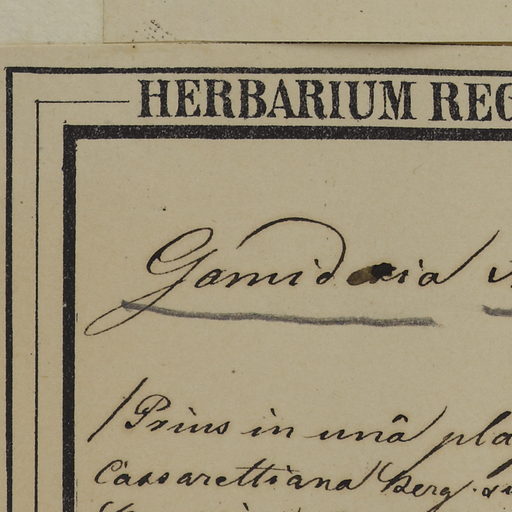 HERBARIUM REG
Gomidesia
/Prius in unâ pla
Cassarettiana Berg.